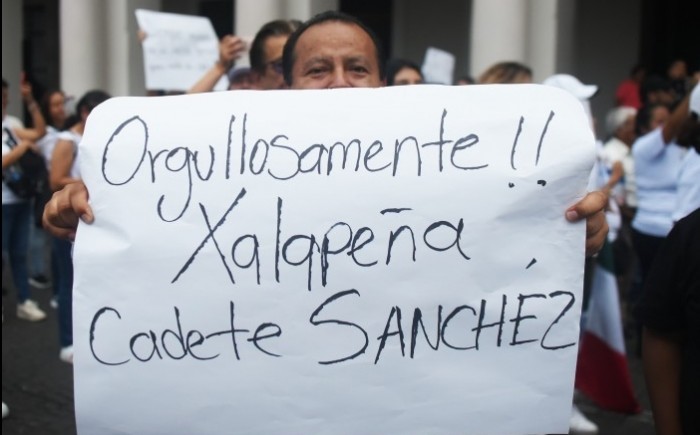 Orgullosamente!!
Xalapeña
Cadete SANCHÉZ